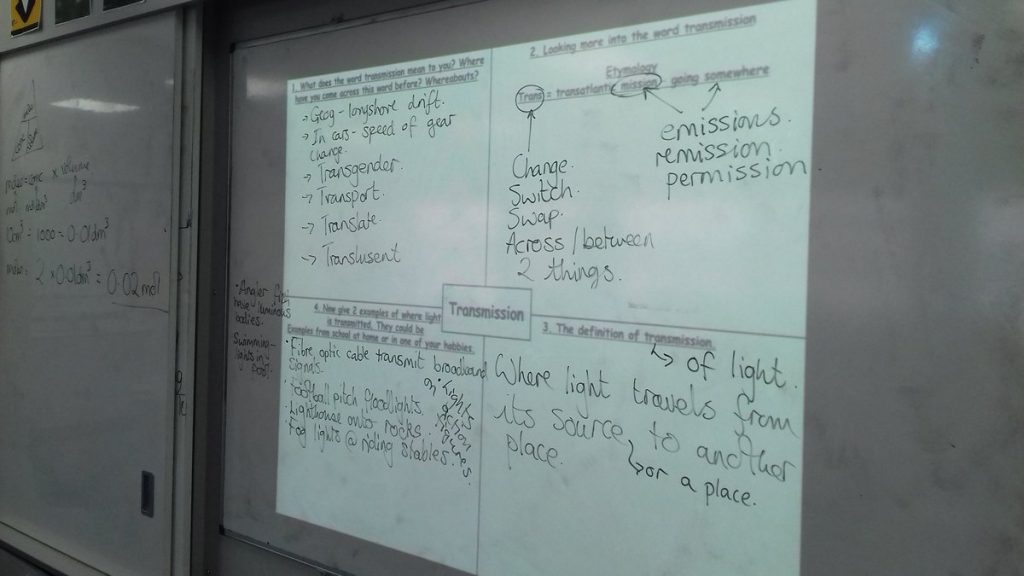 10cm³ ÷ 1000 = 0.01dm³
moles = 2 × 0.01dm³ = 0.02mol
1. What does the word transmission mean to you? Where
have you come across this word before? Whereabouts?
→ Geog - longshore drift.
→ In cars - speed of gear
change.
→ Transgender.
→ Transport.
→ Translate.
→ Translusent
2. Looking more into the word transmission
Etymology
Trans = transatlantic mission going somewhere
Change.
Switch.
Swap.
Across/between
2 things.
emissions.
remission.
permission
Transmission
3. The definition of transmission.
↳ of light.
Where light travels from
its source, to another
place.
↳ or a place.
4. Now give 2 examples of where light
is transmitted. They could be
Examples from school at home or in one of your hobbies
• Fibre, optic cable transmit broadband
signals.
• Football pitch floodlights.
• Lighthouse onto rocks.
• Fog lights @ riding stables.
• Lights
on
action
figures.
• Angler fish
have luminous
bodies.
Swimming -
lights in
pool.